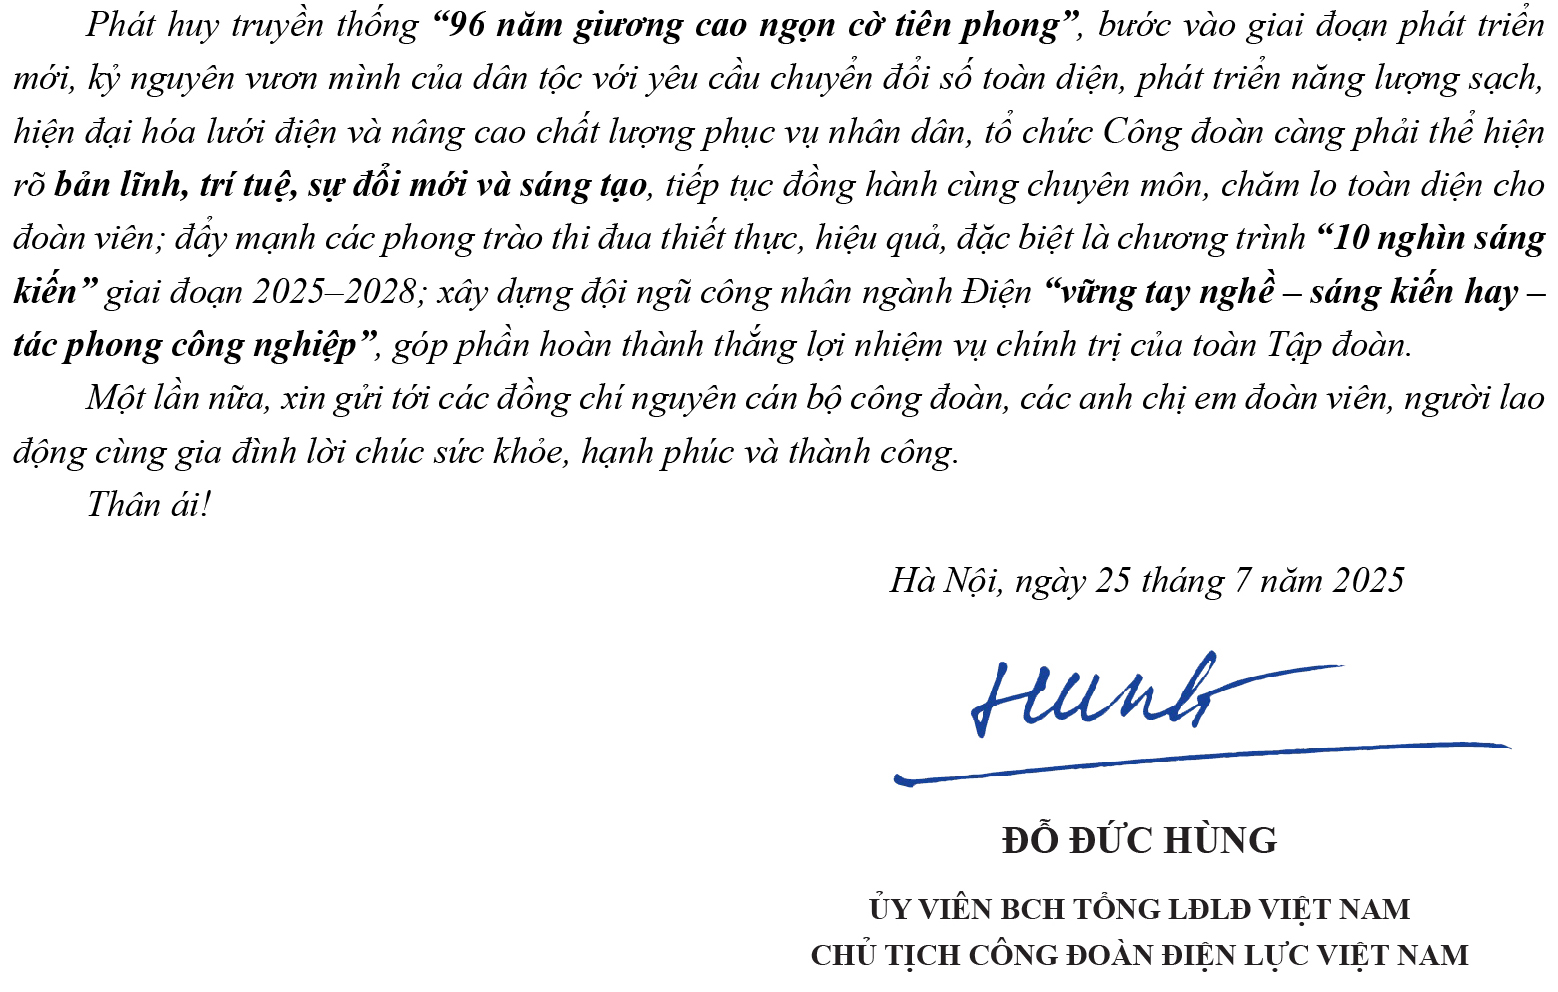 Phát huy truyền thống “96 năm giương cao ngọn cờ tiên phong”, bước vào giai đoạn phát triển
mới, kỷ nguyên vươn mình của dân tộc với yêu cầu chuyển đổi số toàn diện, phát triển năng lượng sạch,
hiện đại hóa lưới điện và nâng cao chất lượng phục vụ nhân dân, tổ chức Công đoàn càng phải thể hiện
rõ bản lĩnh, trí tuệ, sự đổi mới và sáng tạo, tiếp tục đồng hành cùng chuyên môn, chăm lo toàn diện cho
đoàn viên; đẩy mạnh các phong trào thi đua thiết thực, hiệu quả, đặc biệt là chương trình “10 nghìn sáng
kiến” giai đoạn 2025–2028; xây dựng đội ngũ công nhân ngành Điện “vững tay nghề – sáng kiến hay –
tác phong công nghiệp”, góp phần hoàn thành thắng lợi nhiệm vụ chính trị của toàn Tập đoàn.
Một lần nữa, xin gửi tới các đồng chí nguyên cán bộ công đoàn, các anh chị em đoàn viên, người lao
động cùng gia đình lời chúc sức khỏe, hạnh phúc và thành công.
Thân ái!
Hà Nội, ngày 25 tháng 7 năm 2025
ĐỖ ĐỨC HÙNG
ỦY VIÊN BCH TỔNG LĐLĐ VIỆT NAM
CHỦ TỊCH CÔNG ĐOÀN ĐIỆN LỰC VIỆT NAM